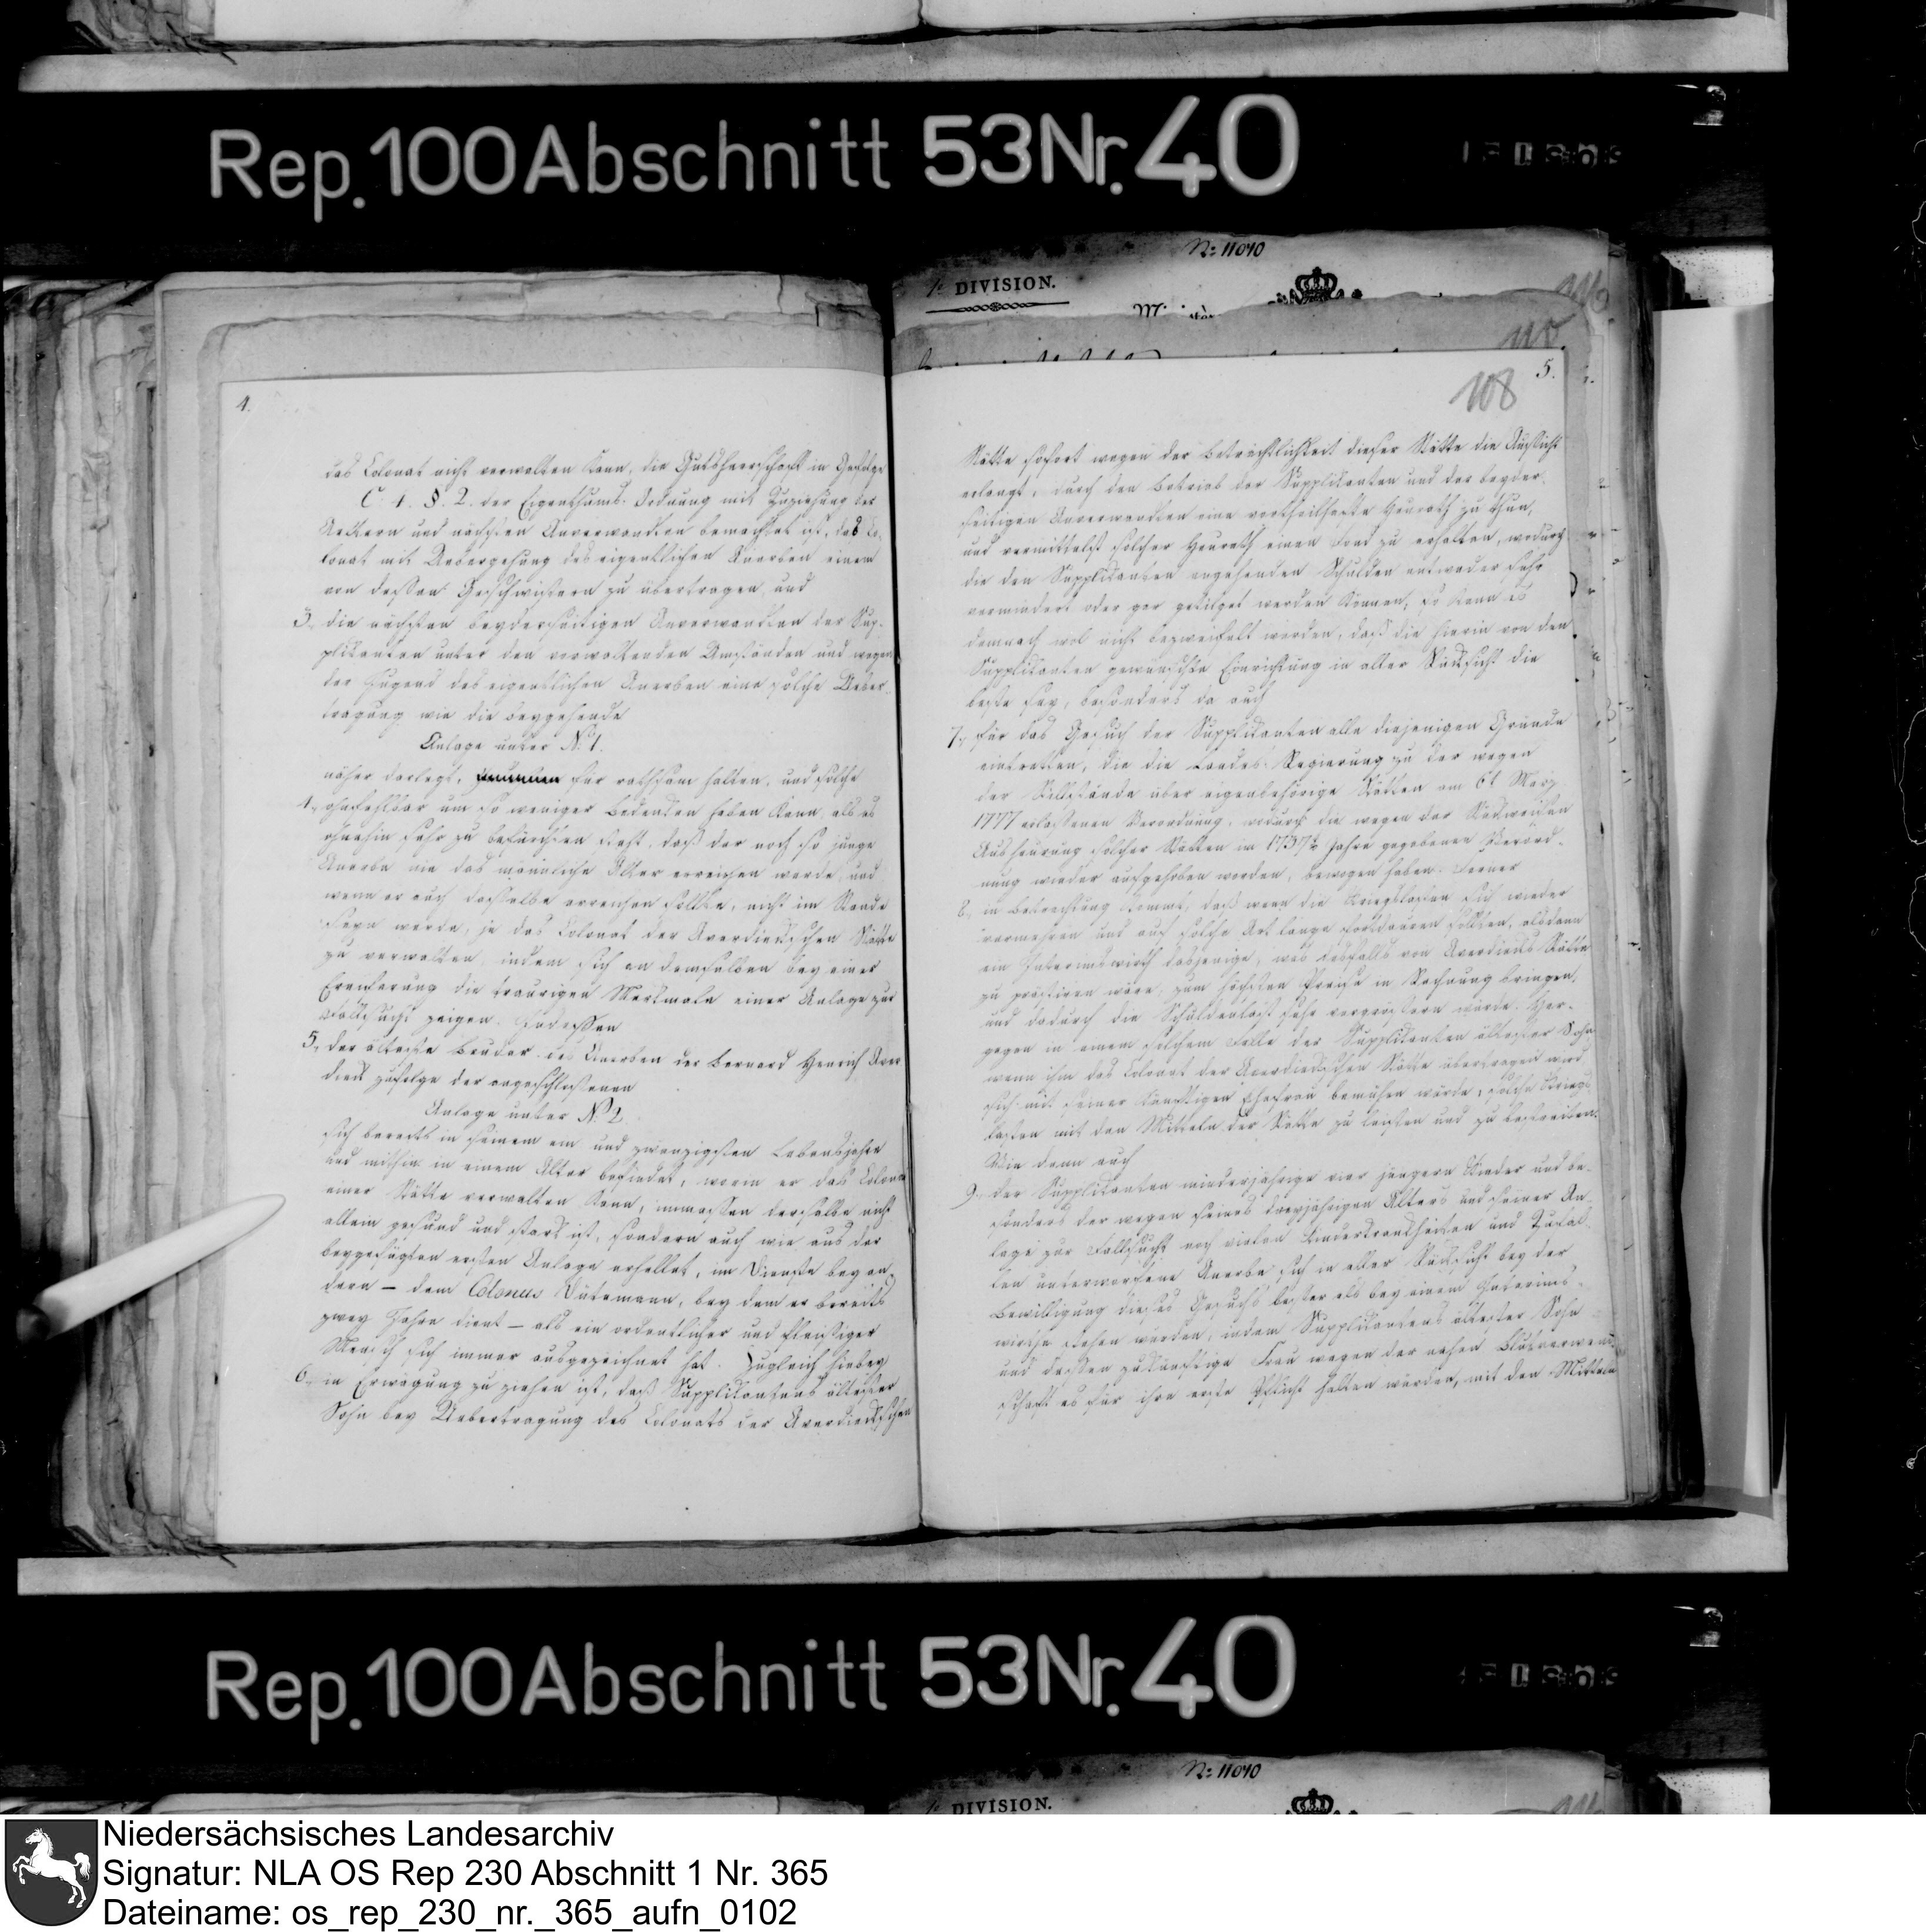 Rep. 100 Abschnitt 53 Nr. 40
No: 11040
1e DIVISION.
116
110
4.
das Colonat nicht verwalten kann, die Gutsherrschaft in Gefolge
C. 4. §. 2. der Eigenthums-Ordnung mit Zuziehung der
Aeltern und nächsten Anverwandten bemächtet ist, das Co-
lonat mit Uebergehung des eigentlichen Anerben einem
von dessen Geschwistern zu übertragen, und
3., die nächsten beyderseitigen Anverwandten der Sup-
plikanten unter den vorwaltenden Umständen und wegen
der Jugend des eigentlichen Anerben eine solche Ueber-
tragung wie die beygehende
Anlage unter N. 1.
näher darlegt, für rathsam halten, und solche
4., ohnfehlbar um so weniger Bedenken haben kann, als es
ohnehin sehr zu befürchten steht, daß der noch so junge
Anerbe nie das männliche Alter erreichen werde, und
wenn er auch dasselbe erreichen sollte, nicht im Stande
seyn werde, je das Colonat der Averdiekschen Stätte
zu verwalten, indem sich an demselben bey einer
die traurigen Merkmale einer Anlage zur
Fallsucht zeigen. Indessen
5., der älteste Bruder des Anerben der Bernard Henrich Aver
diek zufolge der angeschlossenen
Anlage unter N. 2.
sich bereits in seinem ein und zwanzigsten Lebensjahre
und mithin in einem Alter befindet, worin er das Colonat
einer Stätte verwalten kann, immassen derselbe nicht
allein gesund und stark ist, sondern auch wie aus der
beygefügten ersten Anlage erhellet, im Dienste bey an-
dern – dem Colonus Dütemann, bey dem er bereits
zwey Jahre dient – als ein ordentlicher und fleissiger
Mensch sich immer ausgezeichnet hat. Zugleich hiebey
6., in Erwägung zu ziehen ist, daß Supplikantens ältester
Sohn bey Uebertragung des Colonats der Averdiekschen
5.
108
Stätte sofort wegen der Beträchtlichkeit dieser Stätte die Aussicht
erlangt, durch den Betrieb der Supplikanten und der beyder-
seitigen Anverwandten eine vortheilhafte Heurath zu thun,
und vermittelst solcher Heurath einen Fond zu erhalten, wodurch
die den Supplikanten angehenden Schulden entweder sehr
vermindert oder gar getilget werden können; so kann es
demnach wol nicht bezweifelt werden, daß die hierin von den
Supplikanten gewünschte Einrichtung in aller Rücksicht die
beste sey, besonders da auch
7., für das Gesuch der Supplikanten alle diejenigen Gründe
eintretten, die die Landes-Regierung zu der wegen
der Stillstände über eigenbehörige Stätten am 6t März
1777 erlassenen Verordnung, wodurch die wegen der
Ausheurung solcher Stätten im Jahre gegebenen Verord-
nung wieder aufgehoben worden, bewogen haben. Ferner
8., in Betrachtung kommt, daß wenn die Kriegslasten sich wieder
vermehren und auf solche Art lange fortdauren sollten, alsdann
ein Interimswirth dasjenige, was desfalls von Averdieks Stätte
zu prästiren wäre, zum höchsten Preise in Rechnung bringen,
und dadurch die Schuldenlast sehr vergrössern würde. Her-
gegen in einem solchem Falle der Supplikanten ältester Sohn
wenn ihm das Colonat der Averdiekschen Stätte übertragen wird
sich mit seiner künftigen Ehefrau bemühen würde, solche Kriegs-
lasten mit den Mitteln der Stätte zu leisten und zu bestreiten.
Wie denn auch
9., der Supplikanten minderjährige vier jüngern Kinder und be-
sonders der wegen seines dreyjährigen Alters und seiner An-
lage zur Fallsucht noch vielen Kinderkrankheiten und Zufäl-
len unterworfene Anerbe sich in aller Rücksicht bey der
Bewilligung dieses Gesuchs besser als bey einem Interims-
wirthe stehen würden, indem Supplikantens ältester Sohn
und dessen zukünftige Frau wegen der nahen Blutverwand-
schaft es für ihre erste Pflicht halten würden, mit den Mitteln
Rep. 100 Abschnitt 53 Nr. 40
No: 11040
DIVISION.
Niedersächsisches Landesarchiv
Signatur: NLA OS Rep 230 Abschnitt 1 Nr. 365
Dateiname: os_rep_230_nr._365_aufn_0102